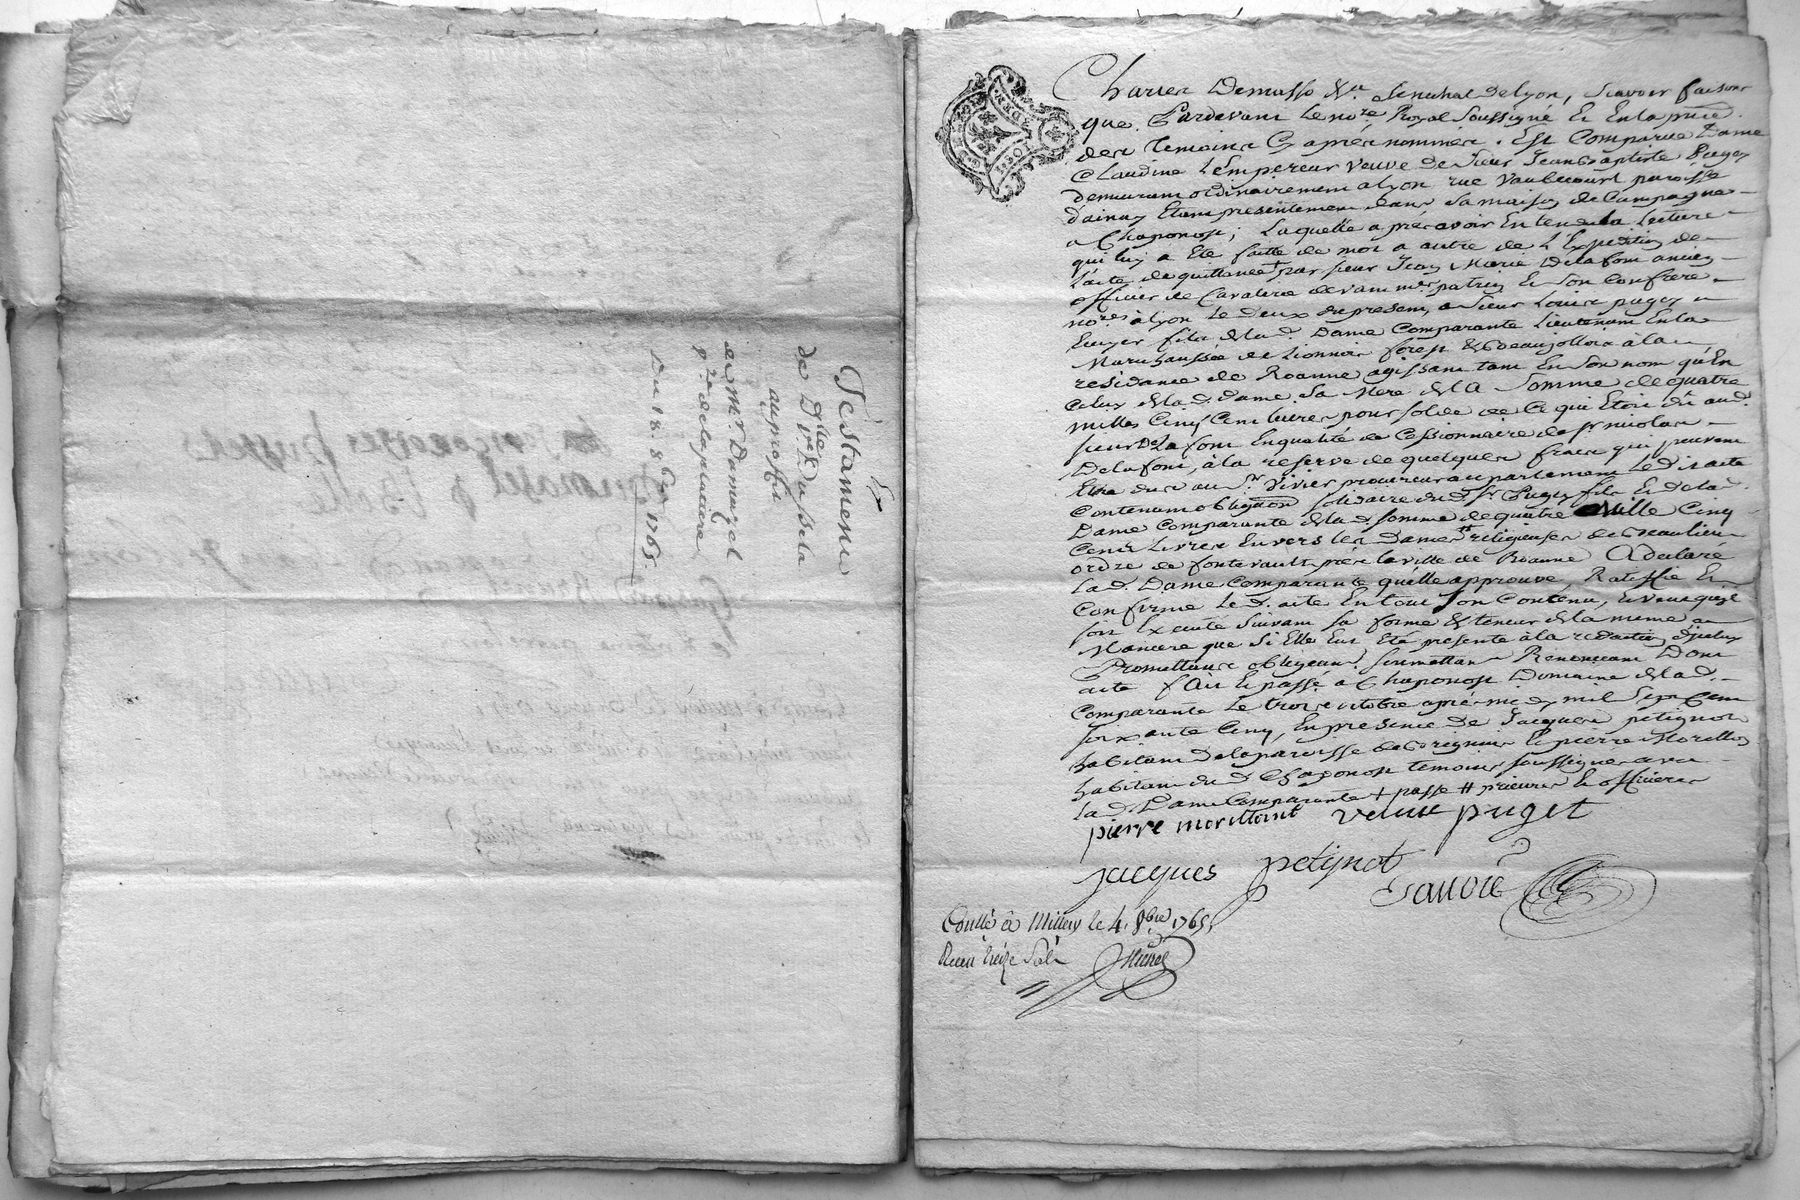 Testament
de D.lle
Vve Du Sela
au proffit
de Mr Dumuzel
Du 18. 8bre 1765
Charier Demasso &a. Senechal de Lyon, scavoir faisons
que Pardevant le nore Royal Soussigné Et En la pnce
des temoins Cy après nommés. Est Comparue Dame
Claudine L'Empereur veuve de Sieur Jean Baptiste Puget
demurant ordinairement a Lyon rue Vaubecourt paroisse
d'ainay Etant presentement dans sa maison de Campagne
a Chaponost; Laquelle après avoir Entendu la Lecture
qui luy a Eté faitte de mot a autre de L'Expedition de
L'acte de quittance + par sieur Jean Marie Delafont ancien
officier de Cavalerie devant me patrin Et Son Confrere
nores à Lyon le deux du present, a Sieur Louis puget
Ecuyer fils de lad. Dame Comparante Lieutenant En la
Marechaussée de Lionnois forest & Beaujollois a la
residance de Roanne agissant tant En Son nom qu'En
Celuy de lad. dame Sa Mere de la Somme de quatre
milles Cinq Cent livres pour solde de Ce qui Etoit dû aud.
sieur De la font En qualité de Cessionnaire de Sr nicolas
Delafont, à la reserve de quelques frais qui peuvent
Etre dus au Sr Vivier procureur au parlement Led. acte
Contenant obligaon solidaire dud. Sr Puget fils Et de lad.
Dame Comparante de lad. somme de quatre Mille Cinq
Cents Livres Envers les Dames # religieuses de Beaulieu
ordre de fontevault près la ville de Roanne A declaré
lad. Dame Comparante qu'elle approuve, Ratiffie Et
Confirme led. acte En tout Son Contenu, Et veut qu'il
soit Executé Suivant Sa forme & teneur de la meme
Maniere que Si Elle Eut Eté présente à la redaction d'jceluy
Promettant obligeant soumettant Renonceant Dont
acte fait Et passé a Chaponost Domaine de lad.
Comparante le trois octobre après midy mil Sept Cent
soixante Cinq, En presence de Jacques petignot
habitant de la paroisse de Brignais Et pierre Morillon
habitant dud. Chaponost temoins soussignes avec
lad. Dame Comparante + passé # prieure Et officieres
pierre morillont veuve puget
jacques petignot
Savoie
Conllé à Millery le 4. 8bre 1765
Receu treize Sols